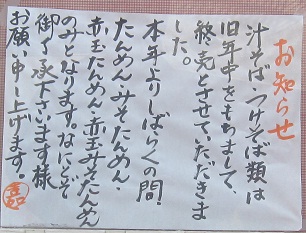 お知らせ
汁そば・つけそば類は
旧年中をもちまして、
終売とさせていただきま
した。
本年よりしばらくの間、
たんめん・みそたんめん・
赤玉たんめん・赤玉みそたんめん
のみとなります。なにとぞ
御了承下さいます様
お願い申し上げます。